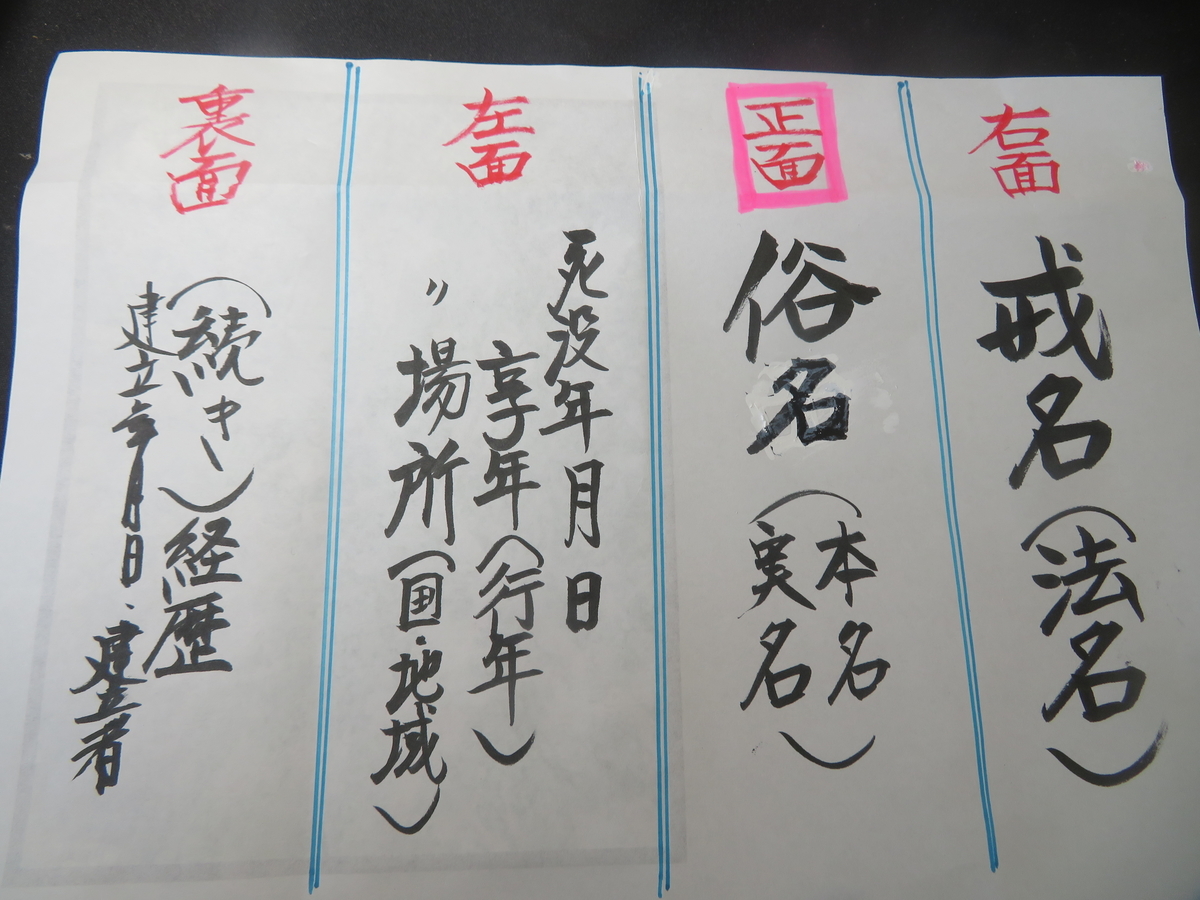 右面
戒名(法名)
正面
俗名(本名
実名)
左面
死没年月日
享年(行年)
〃場所(国・地域)
裏面
(続き)経歴
建立年月日・建立者